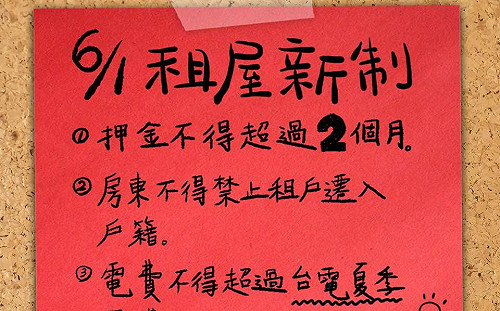 6/1租屋新制
①押金不得超過2個月。
②房東不得禁止租戶遷入
戶籍。
③電費不得超過台電夏季